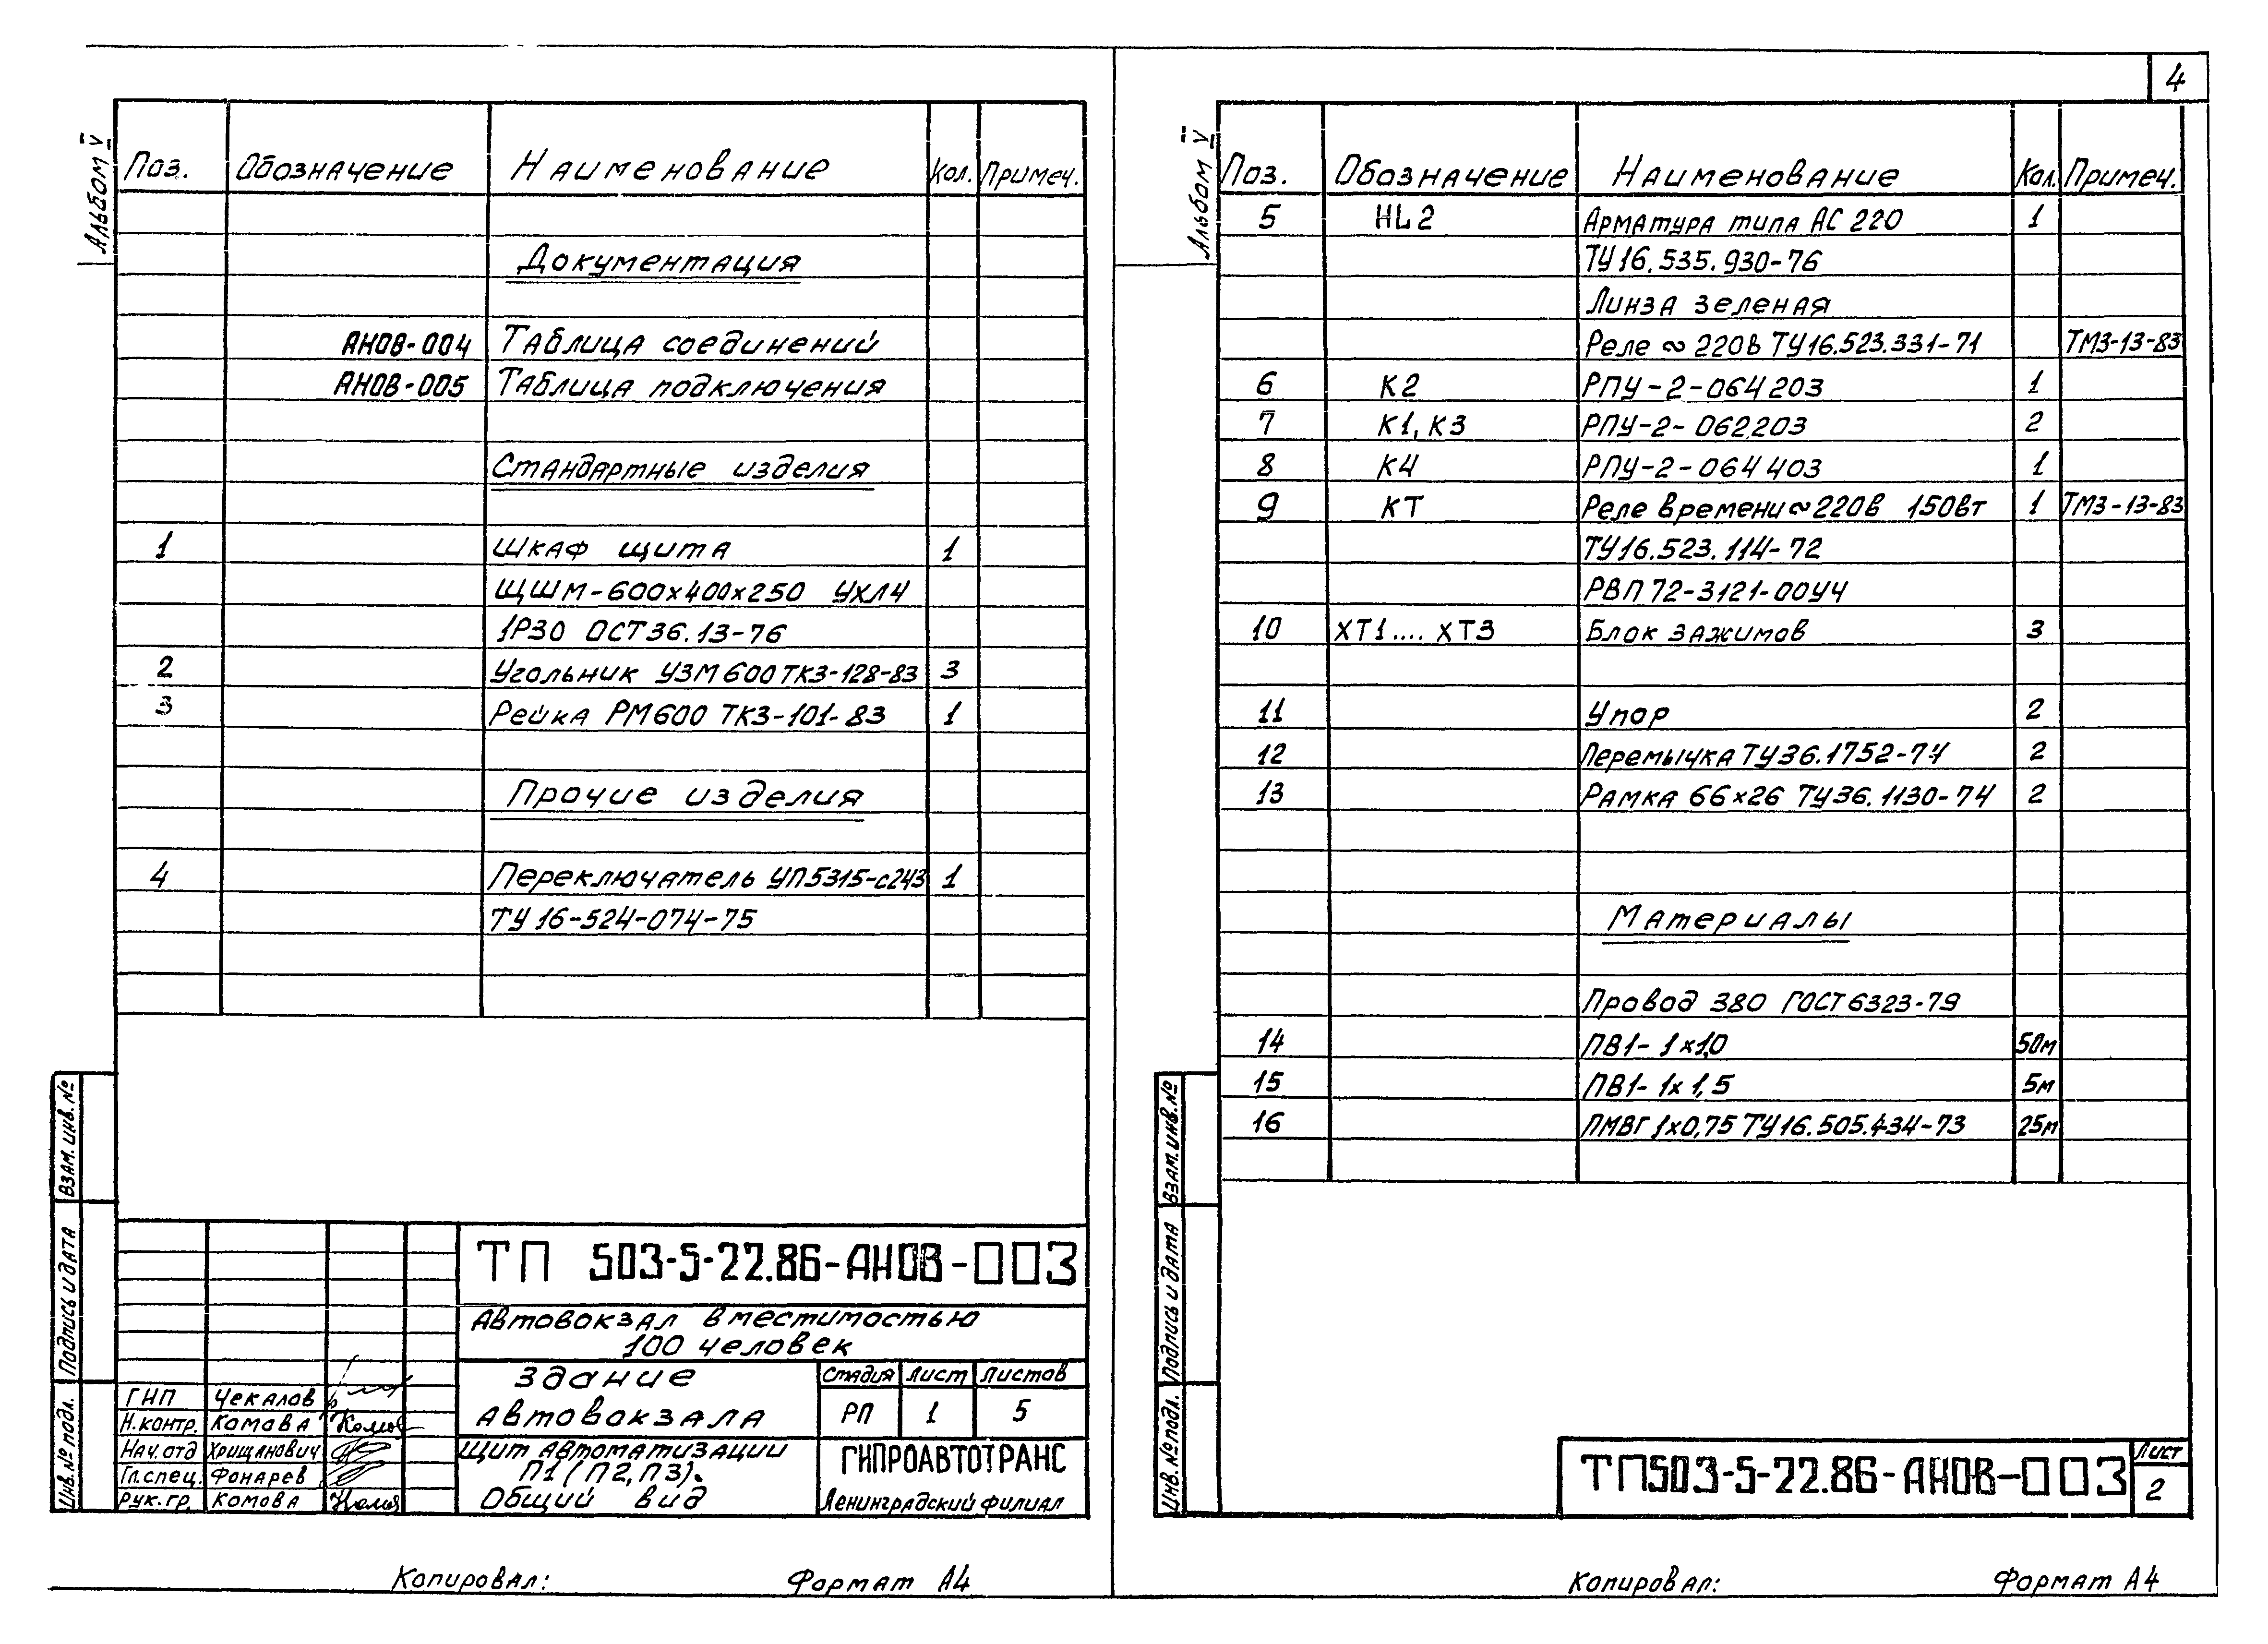 4
Альбом V
Поз. Обозначение Наименование Кол. Примеч.
Документация
АНОВ-004 Таблица соединений
АНОВ-005 Таблица подключения
Стандартные изделия
1 Шкаф щита 1
ЩШМ-600х400х250 УХЛ4
1Р30 ОСТ36.13-76
2 Угольник УЗМ600 ТК3-128-83 3
3 Рейка РМ600 ТК3-101-83 1
Прочие изделия
4 Переключатель УП5315-с243 1
ТУ16-524-074-75
Взам. инв. №
Подпись и дата
Инв. № подл.
ТП 503-5-22.86-АНОВ-003
Автовокзал вместимостью
100 человек
Здание
автовокзала
Стадия Лист Листов
РП 1 5
Щит автоматизации
П1 (П2, П3).
Общий вид
ГИПРОАВТОТРАНС
Ленинградский филиал
ГИП Чекалов
Н.контр. Комова
Нач.отд Хрищанович
Гл.спец. Фонарев
Рук.гр. Комова
Копировал: Формат А4
Альбом V
Поз. Обозначение Наименование Кол. Примеч.
5 HL2 Арматура типа АС 220 1
ТУ16.535.930-76
Линза зеленая
Реле ~ 220в ТУ16.523.331-71 ТМ3-13-83
6 К2 РПУ-2-064203 1
7 К1, К3 РПУ-2-062203 2
8 К4 РПУ-2-064403 1
9 КТ Реле времени ~220в 150вт 1 ТМ3-13-83
ТУ16.523.114-72
РВП72-3121-00У4
10 ХТ1.... ХТ3 Блок зажимов 3
11 Упор 2
12 Перемычка ТУ36.1752-74 2
13 Рамка 66х26 ТУ36.1130-74 2
Материалы
Провод 380 ГОСТ6323-79
14 ПВ1-1х1,0 50м
15 ПВ1-1х1,5 5м
16 ПМВГ 1х0,75 ТУ16.505.434-73 25м
Взам. инв. №
Подпись и дата
Инв. № подл.
ТП503-5-22.86-АНОВ-003
Лист
2
Копировал: Формат А4